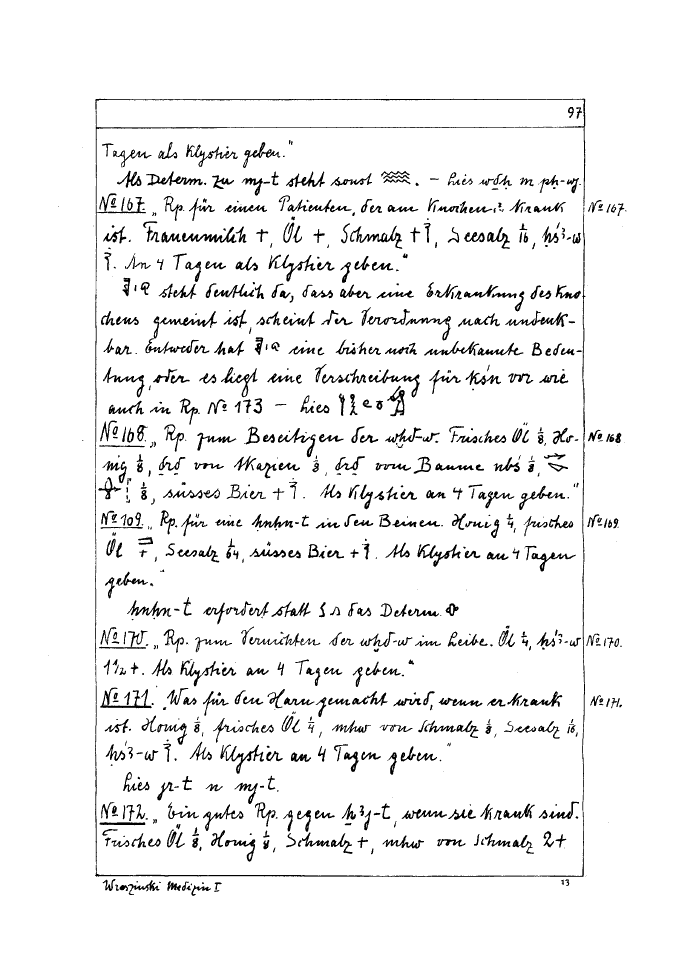 97
Tagen als Klystier geben."
Als Determ. zu mj-t steht sonst 𓈗. – Lies wḏḥ m pḥ-wj.
№ 167. „Rp. für einen Patienten, der am Knochen krank № 167.
ist. Frauenmilch +, Öl +, Schmalz +, Seesalz 1/16, ḥśꜣ-w
. An 4 Tagen als Klystier geben."
steht deutlich da, dass aber eine Erkrankung des Kno-
chens gemeint ist, scheint der Verordnung nach undenk-
bar. Entweder hat eine bisher noch unbekannte Bedeu-
tung, oder es liegt eine Verschreibung für kśn vor wie
auch in Rp. № 173 – Lies
№ 168. „Rp. zum Beseitigen der wḫd-w. Frisches Öl 1/8, Ho- № 168
nig 1/8, ḏrḏ von Akazien 1/8, ḏrḏ vom Baume nbś 1/8,
1/8, süsses Bier +. Als Klystier an 4 Tagen geben."
№ 169. „Rp. für eine hnhn-t in den Beinen. Honig 1/4, frisches № 169.
Öl, Seesalz 1/64, süsses Bier +. Als Klystier an 4 Tagen
geben."
hnhn-t erfordert statt das Determ.
№ 170. „Rp. zum Vernichten der wḫd-w im Leibe. Öl 1/4, ḥśꜣ-w № 170.
1 1/2 +. Als Klystier an 4 Tagen geben."
№ 171. „Was für den Harn gemacht wird, wenn er krank № 171.
ist. Honig 1/8, frisches Öl 1/4, mhw von Schmalz 1/8, Seesalz 1/16,
ḥśꜣ-w. Als Klystier an 4 Tagen geben."
Lies jr-t n mj-t.
№ 172. „Ein gutes Rp. gegen ẖꜣj-t, wenn sie krank sind.
Frisches Öl 1/8, Honig 1/8, Schmalz +, mhw von Schmalz 2+
Wreszinski Medizin I 13